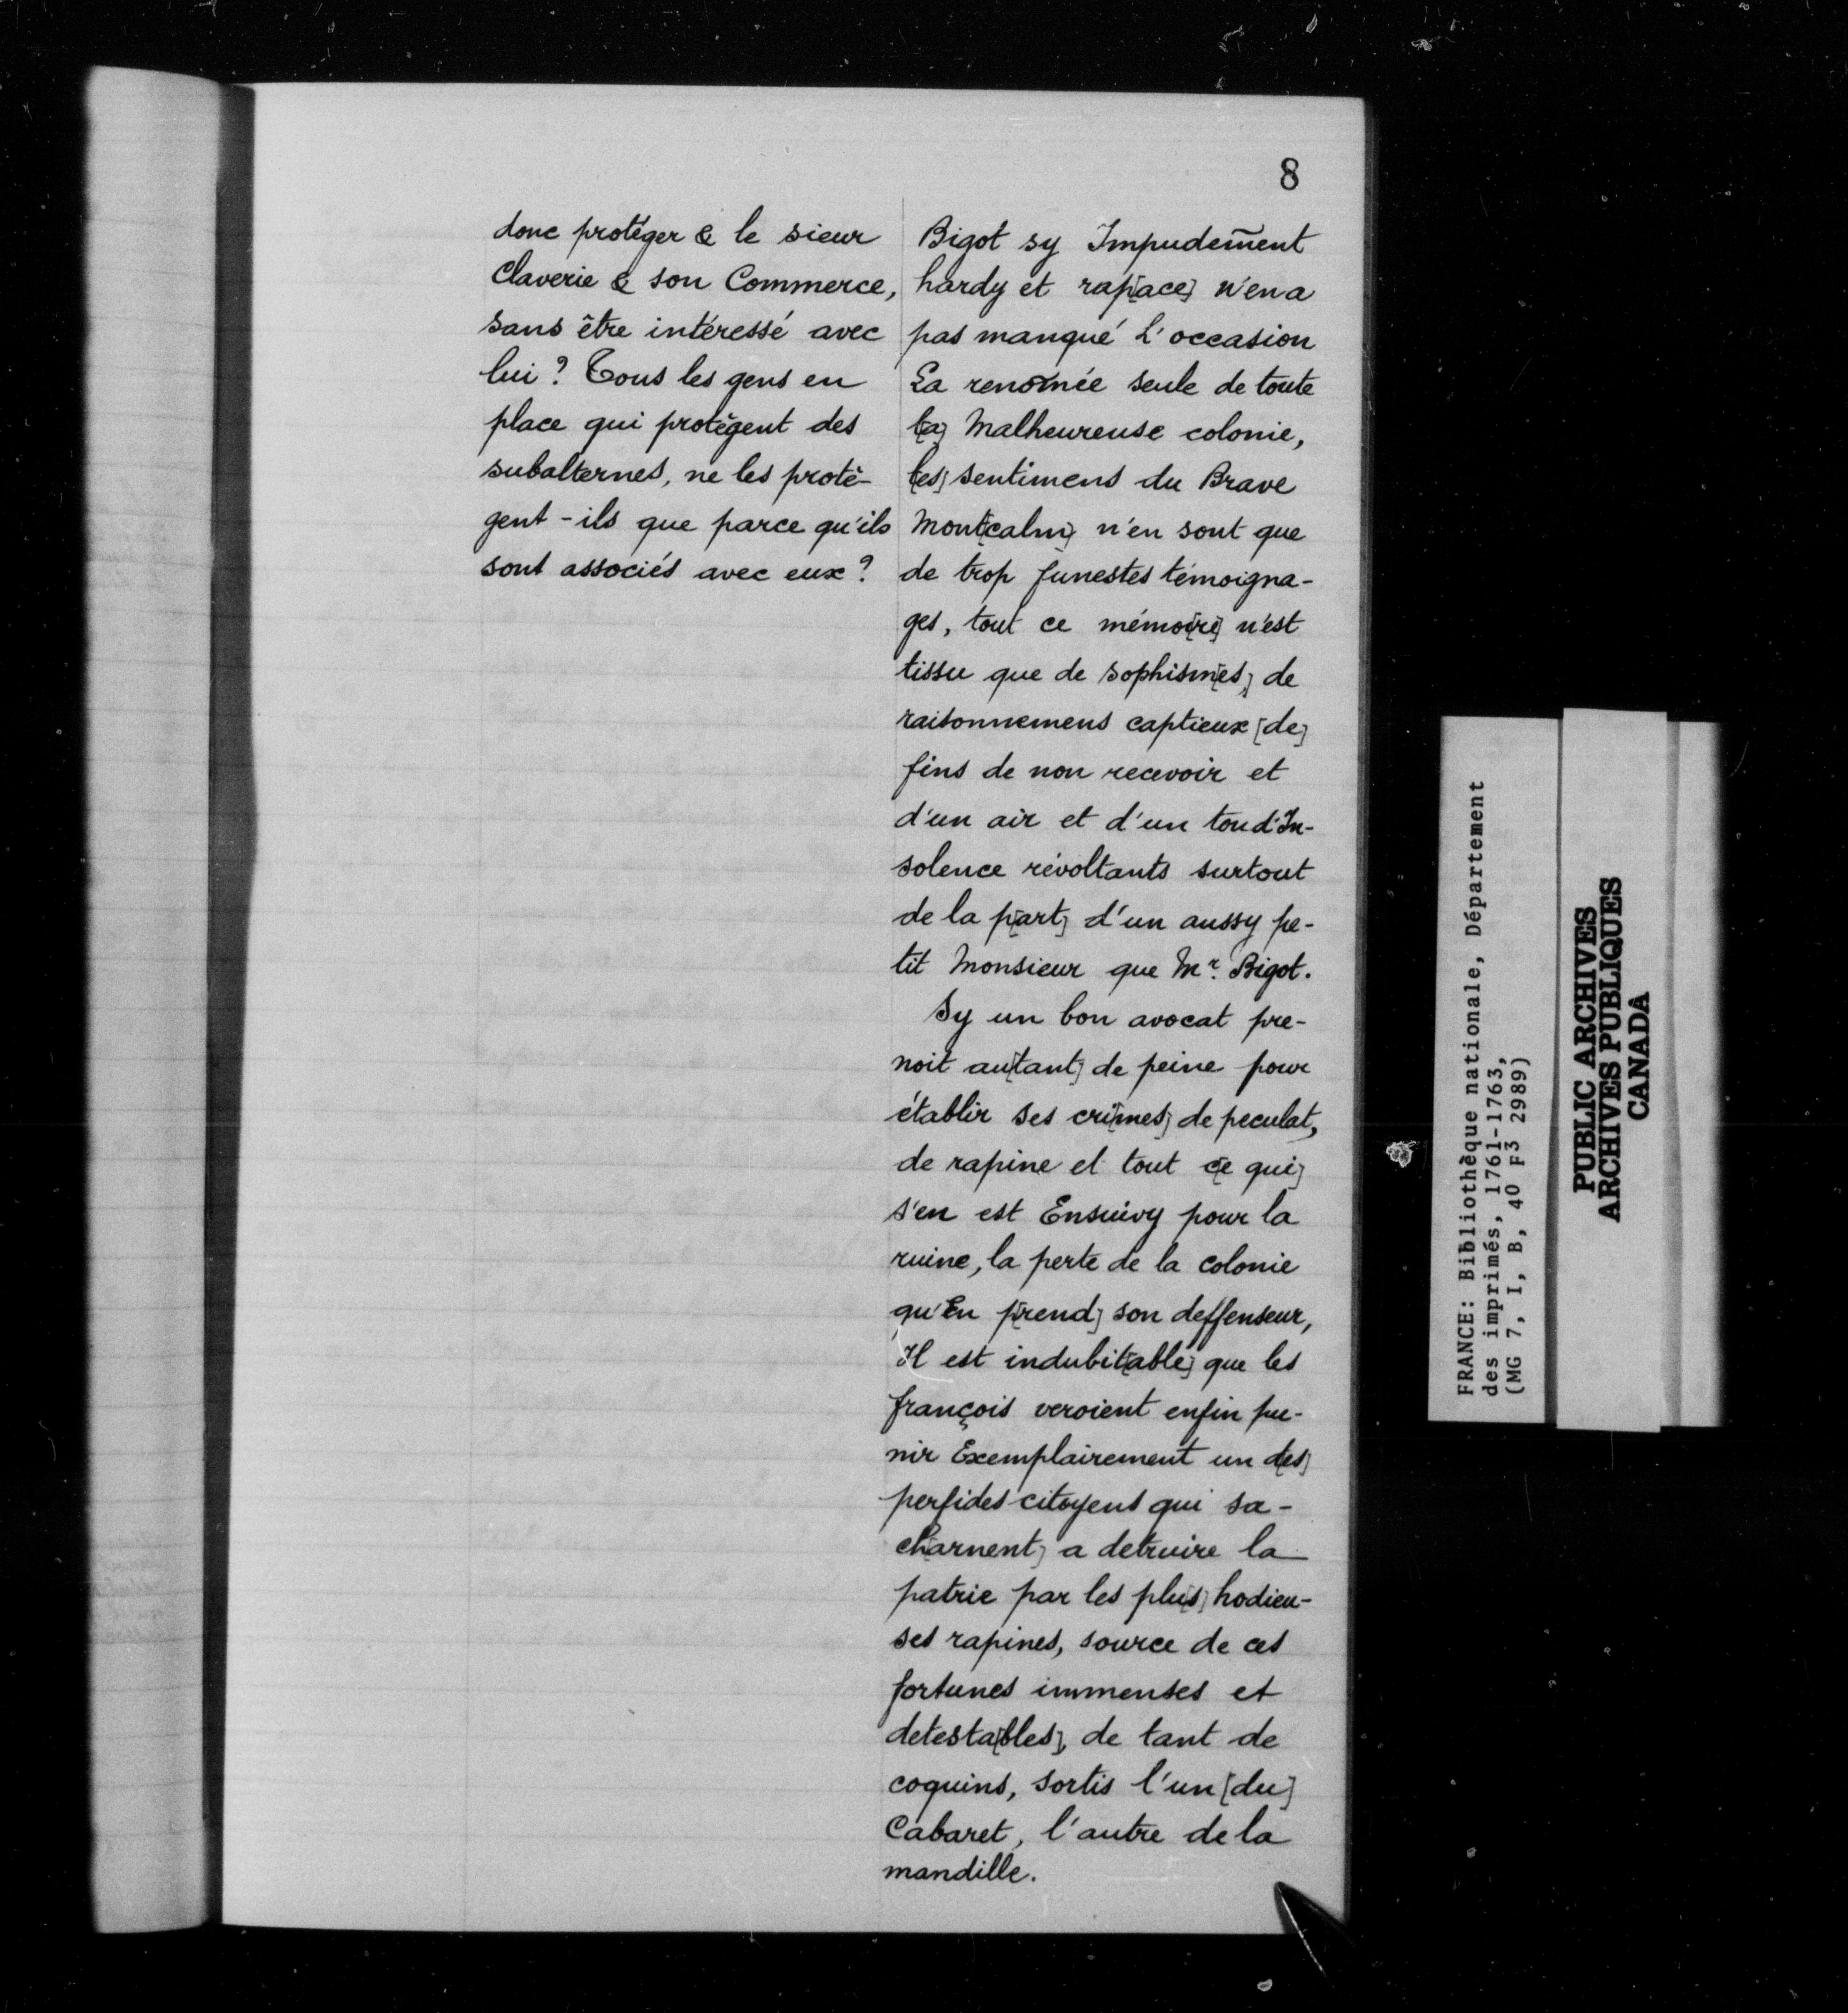 8
donc protéger & le sieur
Claverie & son Commerce,
sans être intéressé avec
lui ? Tous les gens en
place qui protègent des
subalternes, ne les protè-
gent-ils que parce qu'ils
sont associés avec eux ?
Bigot sy Impudem̃ent
hardy et rap[ace] n'en a
pas manqué L'occasion
La renom̃ée seule de toute
l[a] Malheureuse colonie,
l[es] sentimens du Brave
Mont[calm] n'en sont que
de trop funestes témoigna-
ges, tout ce mémo[ire] n'est
tissu que de sophism[es,] de
raisonnemens captieux [de]
fins de non recevoir et
d'un air et d'un ton d'In-
solence révoltants surtout
de la p[art] d'un aussy pe-
tit Monsieur que Mr. Bigot.
Sy un bon avocat pre-
noit au[tant] de peine pour
établir ses cri[mes] de peculat,
de rapine et tout c[e qui]
s'en est Ensuivy pour la
ruine, la perte de la colonie
qu'En p[rend] son deffenseur,
Il est indubit[able] que les
françois veroient enfin pu-
nir Exemplairement un d[es]
perfides citoyens qui sa-
ch[arnent] a detruire la
patrie par les plu[s] hodieu-
ses rapines, source de ces
fortunes immenses et
detesta[bles], de tant de
coquins, sortis l'un [du]
Cabaret, l'autre de la
mandille.
FRANCE: Bibliothèque nationale, Département
des imprimés, 1761-1763,
(MG 7, I, B, 40 F3 2989)
PUBLIC ARCHIVES
ARCHIVES PUBLIQUES
CANADA